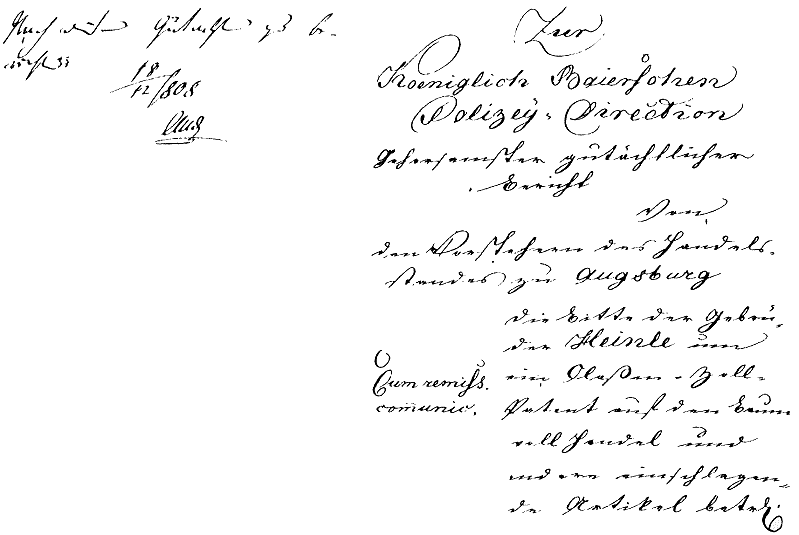 Nach dem Gutacht zu be-
richten
18/12 /808
Zur
Koeniglich Baierschen
Polizey-Direction
Gehorsamster gutächtlicher
Bericht
Von
den Vorstehern des Handels-
standes zu Augsburg
die Bitte der Gebrü-
der Heinle um
ein Classen-Zoll-
Patent auf den Baum
woll Handel und
andere einschlagen-
de Artikel betrf.
Cum remiss.
communic.